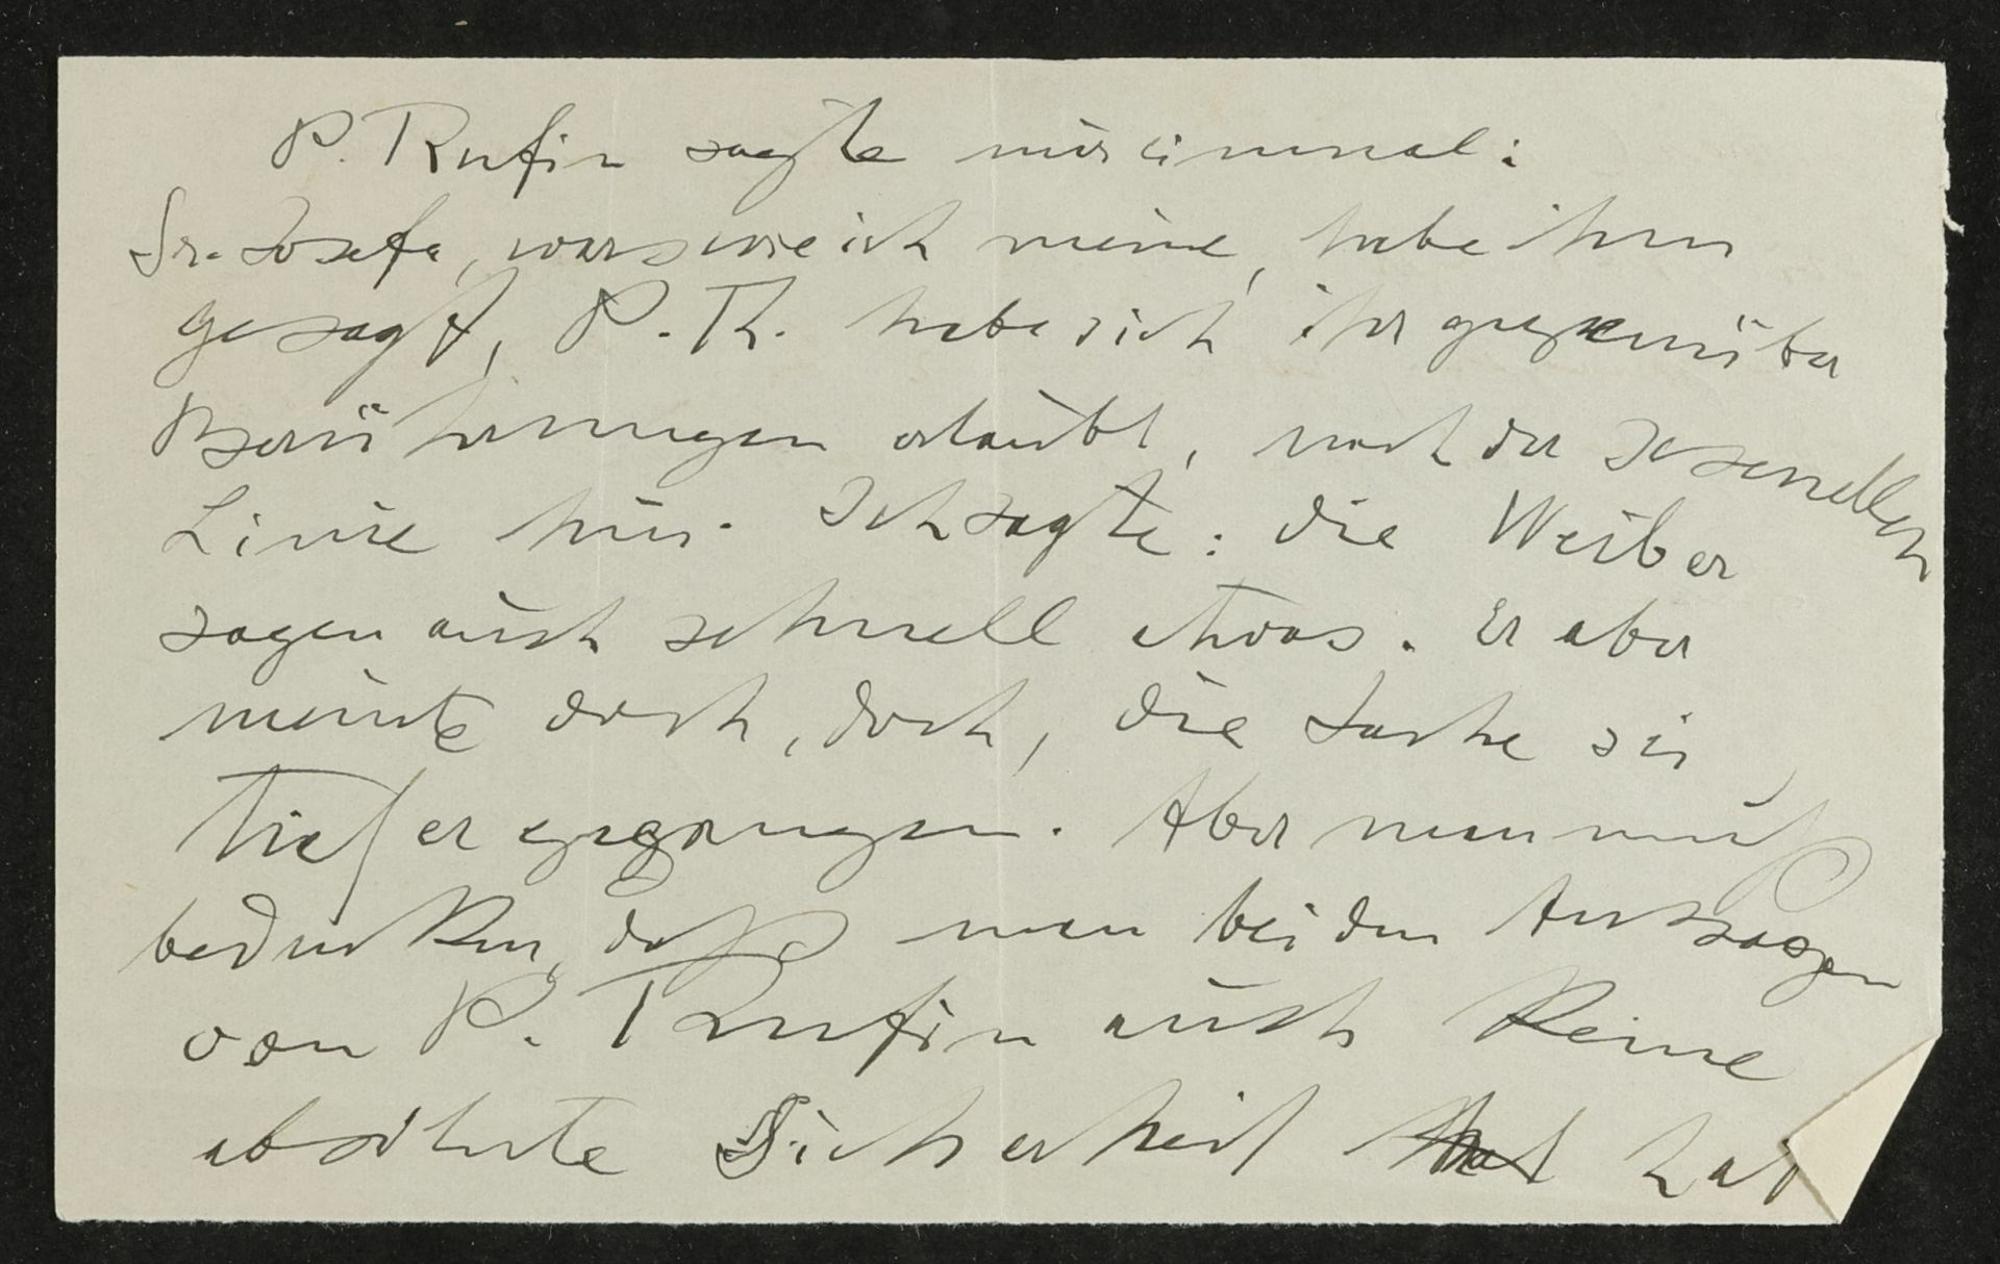 P. Rufin sagte mir einmal:
Sr. Josefa, war es wie ich meine, habe ihm
gesagt, P. Th. habe sich ihr gegenüber
Berührungen erlaubt, nach der sexuellen
Linie hin. Ich sagte: die Weiber
sagen auch schnell etwas. Er aber
meinte doch, doch, die Sache sei
tiefer gegangen. Aber man muß
bedenken, daß man bei den Aussagen
von P. Rufin auch keine
absolute Sicherheit hat